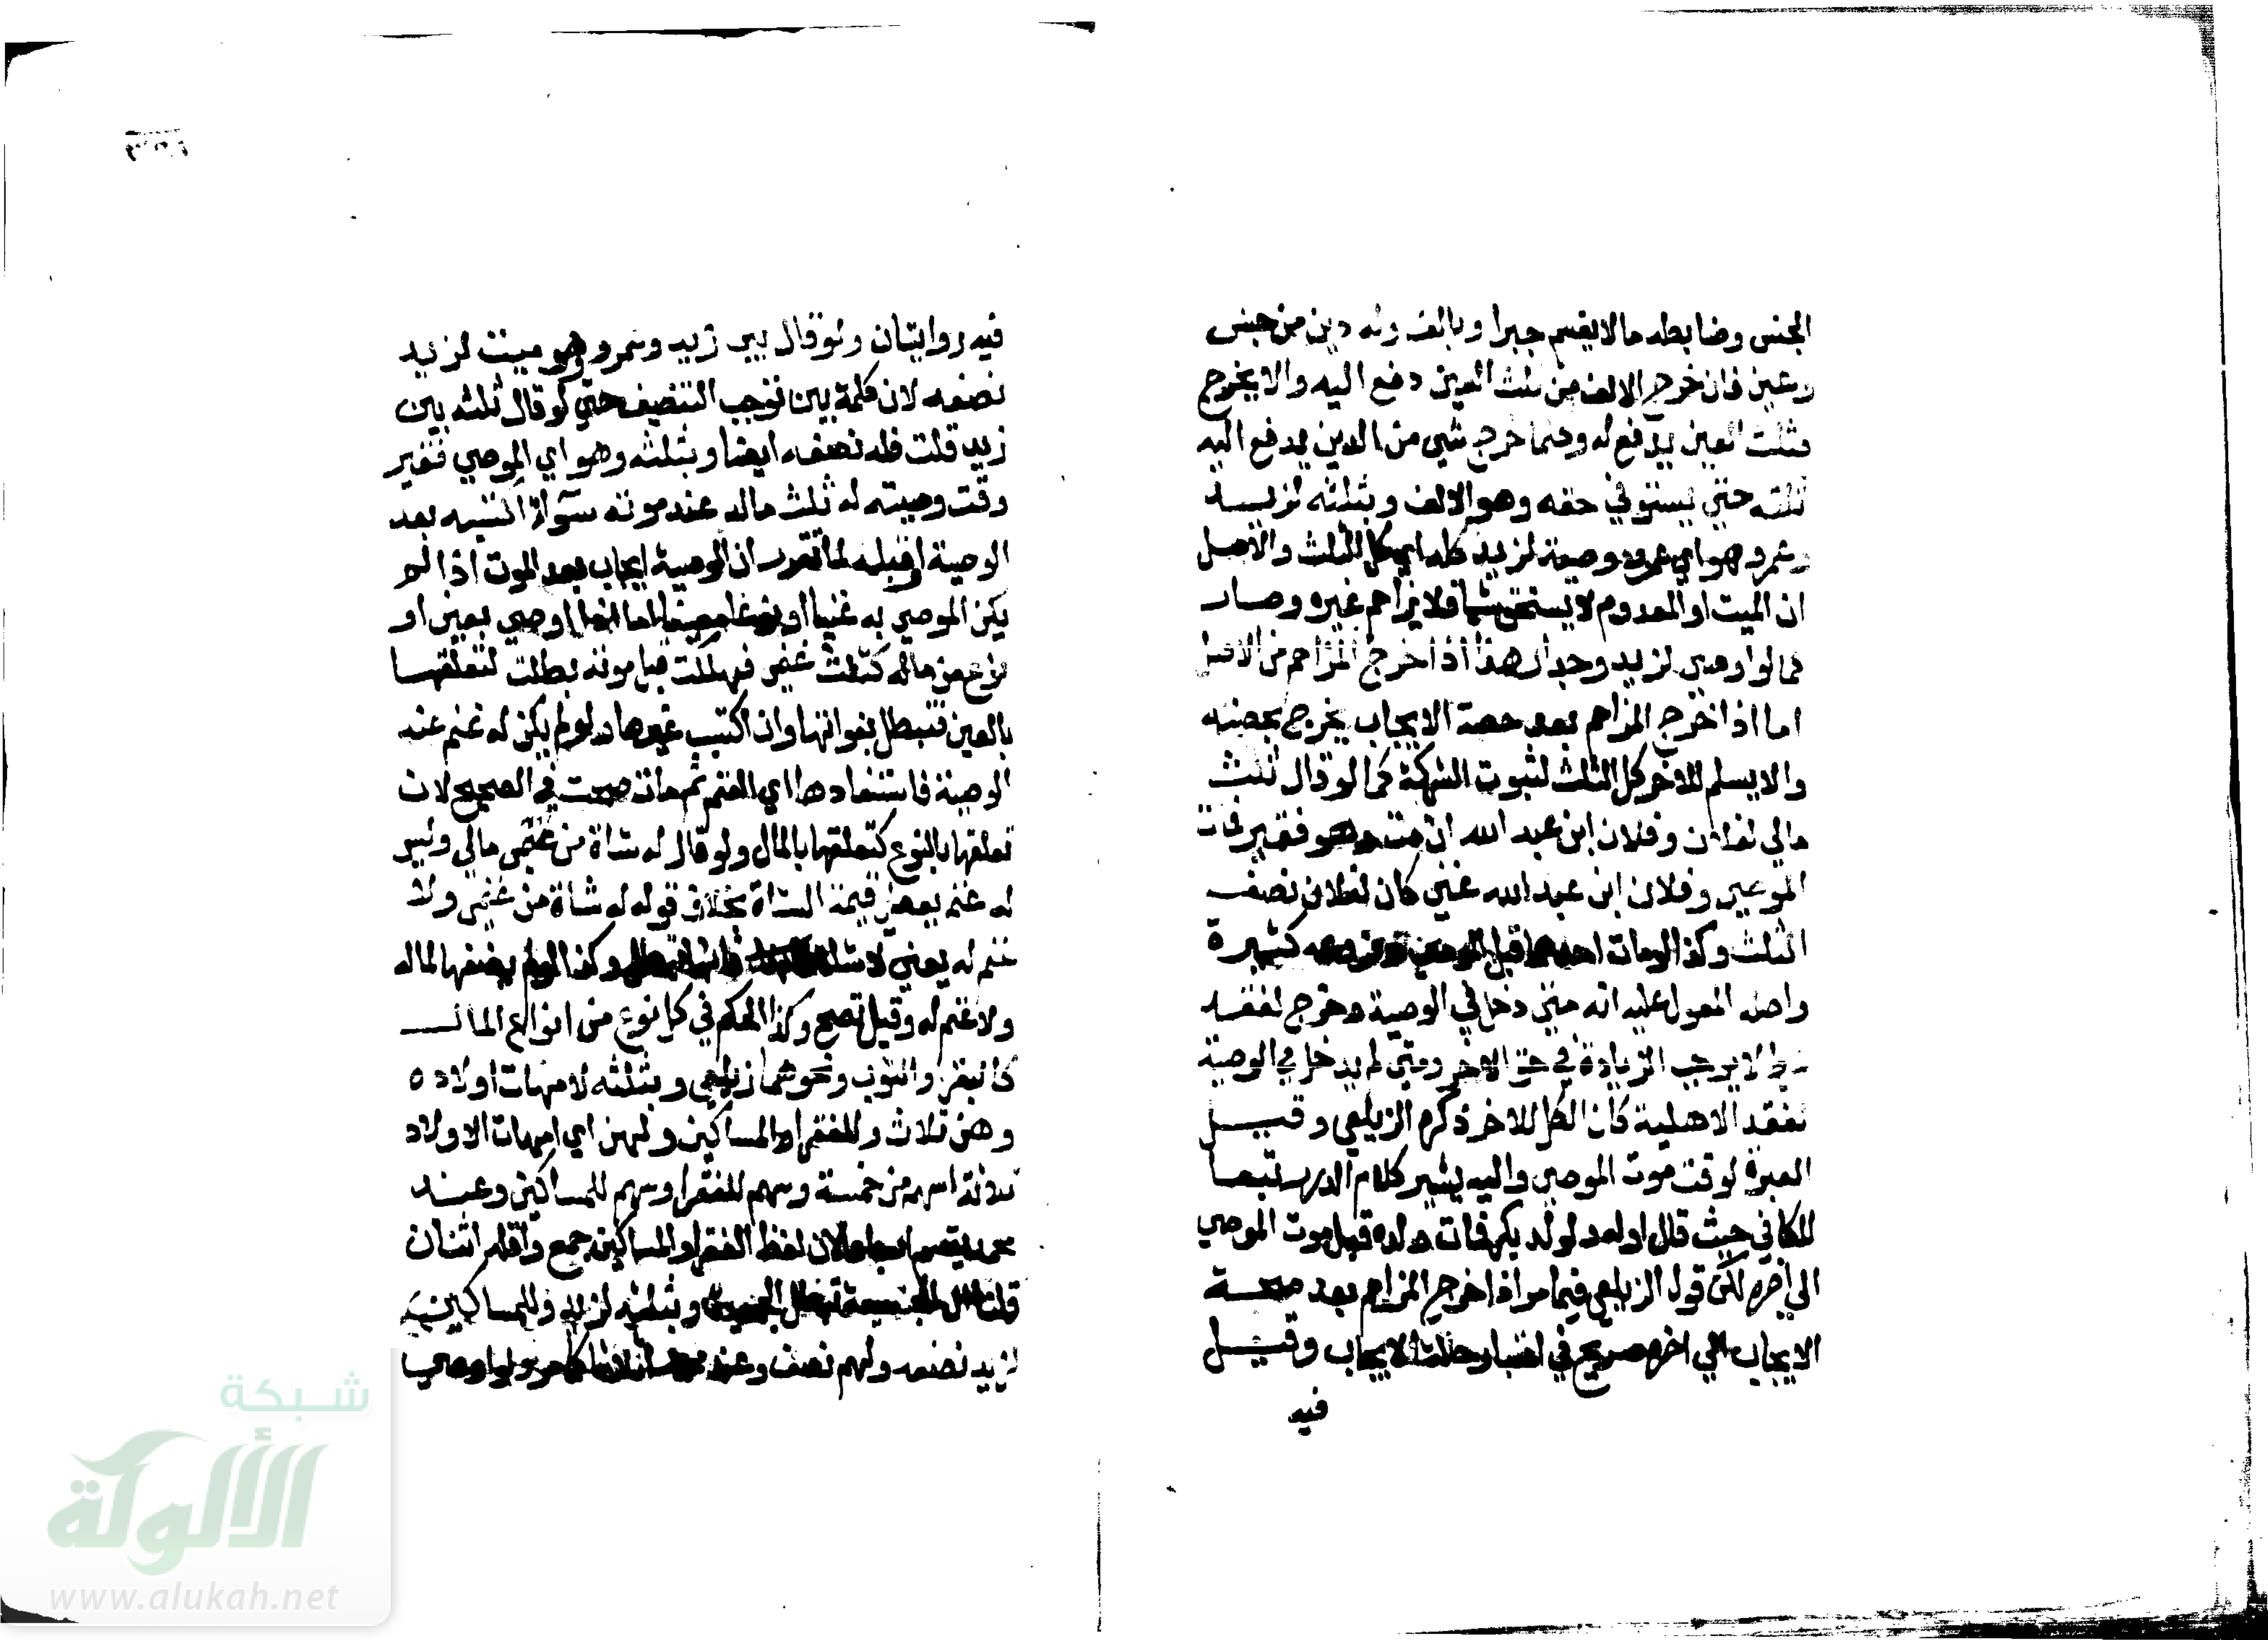 الجنس وضابطه ما لا يقسم جبرا وبالف وله دين من جنس
وعين فان خرج الالف من ثلث العين دفع اليه والا يخرج
فثلث العين يدفع له وكلما خرج شي من الدين يدفع اليه
ثلثه حتي يستوفي حقه وهو الالف وبثلثه لزيد
وعمرو وهو اي عمرو وصيته لزيد كله اي كل الثلث والاصل
ان الميت او المعدوم لا يستحق شيا فلا يزاحم غيره وصار
كما لو اوصي لزيد وجدار هذا اذا خرج المزاحم من الاصل
اما اذا خرج المزاحم بعد صحة الايجاب يخرج بحصته
والا يسلم للاخر كل الثلث لثبوت الشركة كما لو قال ثلث
مالي لفلان وفلان ابن عبد الله ان مت وهو فقير فمات
الموصي وفلان ابن عبد الله غني كان لفلان نصف
الثلث وكذا لو مات احدهما قبل الموصي وفروعه كثيرة
واصله المعول عليه انه متي دخل في الوصية وخرج لفقد
شرط لا يوجب الزيادة في حق الاخر ومتي لم يدخل في الوصية
لفقد الاهلية كان الكل للاخر ذكره الزيلعي وقيل
العبرة لوقت موت الموصي واليه يشير كلام الدرر تبعا
للكافي حيث قال اوله ولولد بكر فمات ولده قبل موت الموصي
الي اخره لكن قول الزيلعي فيما مر اذا خرج المزاحم بعد صحة
الايجاب الي اخره صريح في اعتبار حالة الايجاب وقيل
فيه
فيه روايتان ولو قال بين زيد وعمرو وهو ميت لزيد
نصفه لان كلمة بين توجب التنصيف حتي لو قال ثلثه بين
زيد قلت فله نصفه ايضا وبثلثه وهو اي الموصي فقير
وقت وصيته له ثلث ماله عند موته سواء اكتسبه بعد
الوصية او قبله لما تقرر ان الوصية ايجاب بعد الموت اذا لم
يكن الموصي به عينا او نوعا معينا اما اذا اوصي بعين او
نوع من ماله كثلث غنمي فهلكت قبل موته بطلت لتعلقها
بالعين فتبطل بفواتها وان اكتسب غيرها ولو لم يكن له غنم عند
الوصية فاستفادها اي الغنم ثم مات صحت في الصحيح لان
تعلقها بالنوع كتعلقها بالمال ولو قال له شاة من غنمي مالي وليس
له غنم يعطي قيمة الشاة بخلاف قوله له شاة من غنمي ولا
غنم له يعني لا شاة له فانها تبطل وكذا لو لم يضفها لماله
ولا غنم له وقيل تصح وكذا الحكم في كل نوع من انواع المال
كالبقر والثوب ونحوهما زيلعي وبثلثه لامهات اولاده
وهن ثلاث وللفقرا والمساكين ولهن اي امهات الاولاد
ثلاثة اسهم من خمسة وسهم للفقرا وسهم للمساكين وعند
محمد يقسم اسباعا لان لفظ الفقرا والمساكين جمع واقله اثنان
قلنا ال الجنسية تبطل الجمعية وبثلثه لزيد وللمساكين
لزيد نصفه ولهم نصف وعند محمد اثلاثا كما مر ولو اوصي
شبكة
الألوكة
www.alukah.net